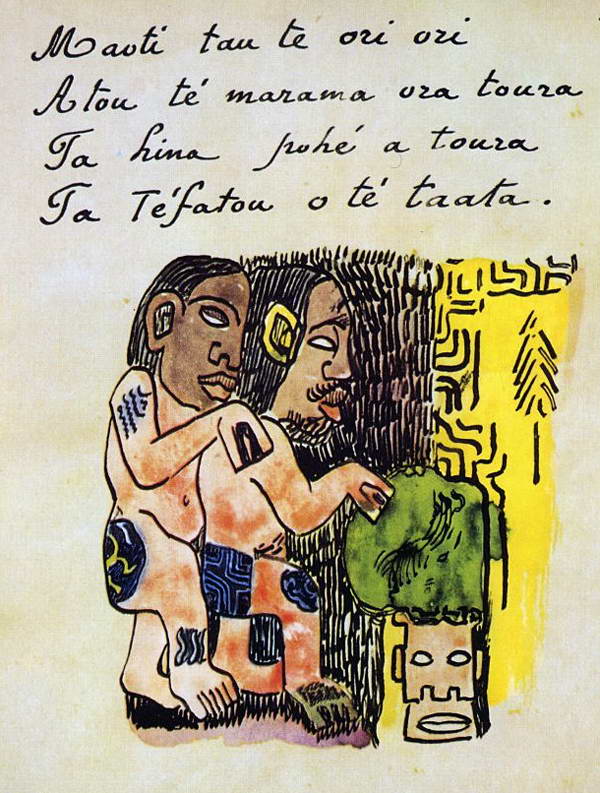 Maoti tau te ori ori
Atou té marama ora toura
Ta hina pohé a toura
Ta Téfatou o té taata.